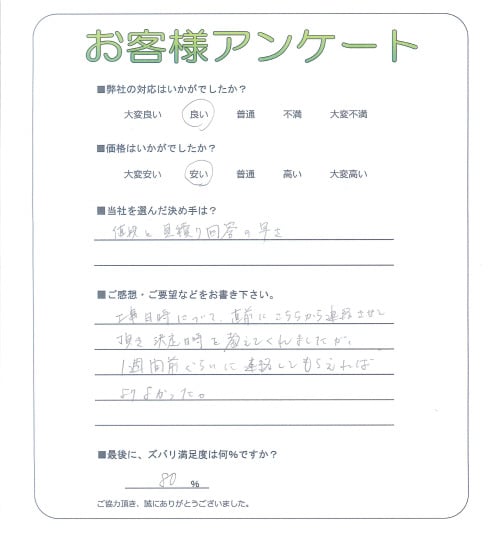 お客様アンケート
■弊社の対応はいかがでしたか？
大変良い 良い 普通 不満 大変不満
■価格はいかがでしたか？
大変安い 安い 普通 高い 大変高い
■当社を選んだ決め手は？
価段と見積り回答の早さ
■ご感想・ご要望などをお書き下さい。
工事日時について、直前にこちらから連絡させて
頂き 決定日時を教えてくれましたが、
1週間前ぐらいに連絡してもらえれば
よりよかった。
■最後に、ズバリ満足度は何％ですか？
80 ％
ご協力頂き、誠にありがとうございました。